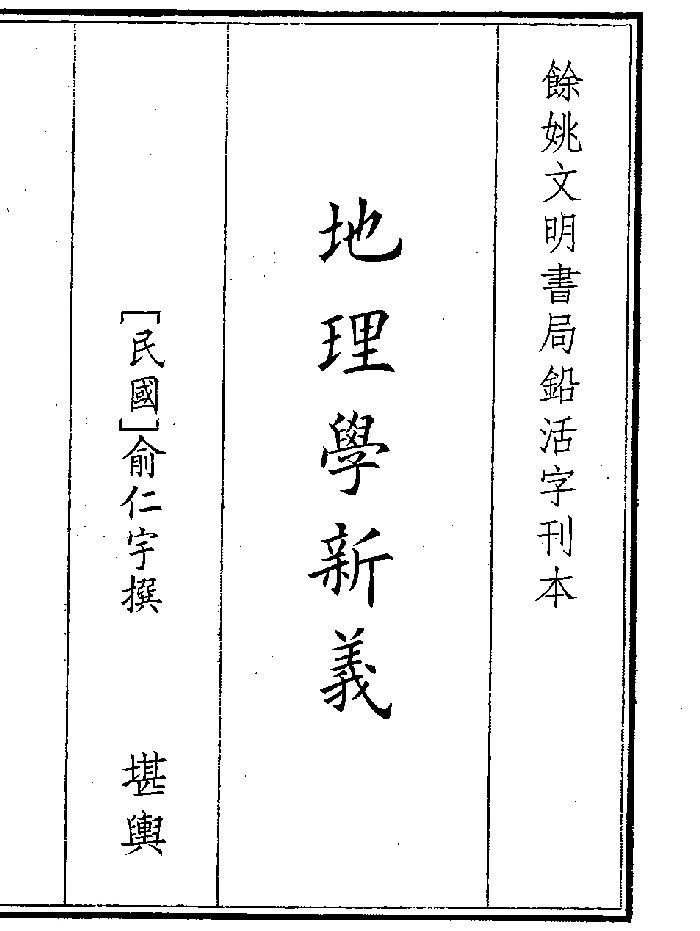 餘姚文明書局鉛活字刊本
地理學新義
[民國]俞仁宇撰 堪輿